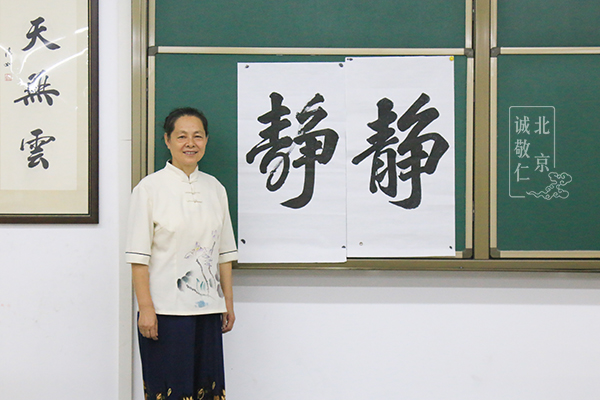 天無雲
静
静
北京
诚敬仁